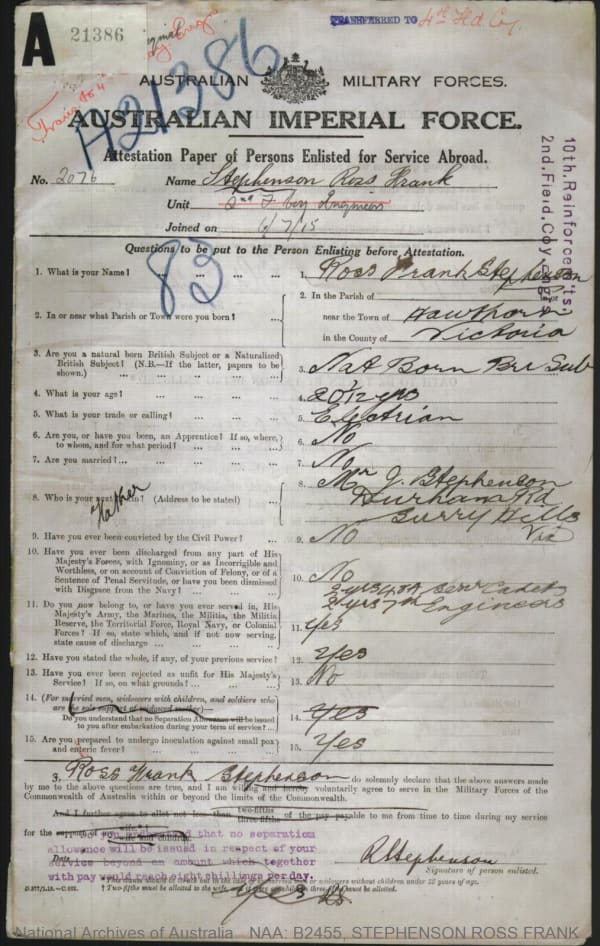 A
21386
TRANSFERRED TO 4th Fld Coy.
H21386
AUSTRALIAN MILITARY FORCES.
AUSTRALIAN IMPERIAL FORCE.
Attestation Paper of Persons Enlisted for Service Abroad.
No. 2076 Name Stephenson Ross Frank
Unit 2nd F Coy Engineers
Joined on 6/7/15
10th Reinforce'ts:
2nd. Field. Coy Eng
Questions to be put to the Person Enlisting before Attestation.
83
1. What is your Name? ... 1. Ross Frank Stephenson
2. In or near what Parish or Town were you born? ... 2. In the Parish of
near the Town of Hawthorn
in the County of Victoria
3. Are you a natural born British Subject or a Naturalized
British Subject? (N.B.—If the latter, papers to be
shown.) ... 3. Nat Born Bri Sub
4. What is your age? ... 4. 20 7/12 yrs
5. What is your trade or calling? ... 5. Electrian
6. Are you, or have you been, an Apprentice? If so, where,
to whom, and for what period? ... 6. No
7. Are you married?... 7. No
8. Who is your next of kin? (Address to be stated) ... 8. Mr J. Stephenson
Father
Durham Rd
Surry Hills
Vic
9. Have you ever been convicted by the Civil Power? ... 9. No
10. Have you ever been discharged from any part of His
Majesty's Forces, with Ignominy, or as Incorrigible and
Worthless, or on account of Conviction of Felony, or of a
Sentence of Penal Servitude, or have you been dismissed
with Disgrace from the Navy? ... 10. No
11. Do you now belong to, or have you ever served in, His
Majesty's Army, the Marines, the Militia, the Militia
Reserve, the Territorial Force, Royal Navy, or Colonial
Forces? If so, state which, and if not now serving,
state cause of discharge ... 11. Yes
Cadets
Engineers
12. Have you stated the whole, if any, of your previous service? 12. Yes
13. Have you ever been rejected as unfit for His Majesty's
Service? If so, on what grounds? ... 13. No
14. (For married men, widowers with children, and soldiers who
are the sole support of widowed mother)—
Do you understand that no Separation Allowance will be issued
to you after embarkation during your term of service? ... 14. Yes
15. Are you prepared to undergo inoculation against small pox
and enteric fever? ... 15. Yes
I, Ross Frank Stephenson do solemnly declare that the above answers made
by me to the above questions are true, and I am willing and hereby voluntarily agree to serve in the Military Forces of the
Commonwealth of Australia within or beyond the limits of the Commonwealth.
And I further agree to allot not less than two-fifths three-fifths of the pay payable to me from time to time during my service
for the support of my wife wife and children.
and that no separation
allowance will be issued in respect of your
service beyond an amount which together
with pay would reach eight shillings per day.
Date
R Stephenson
Signature of person enlisted.
† Two-fifths must be allotted to the wife, must be allotted.
Yes RS
National Archives of Australia NAA: B2455, STEPHENSON ROSS FRANK